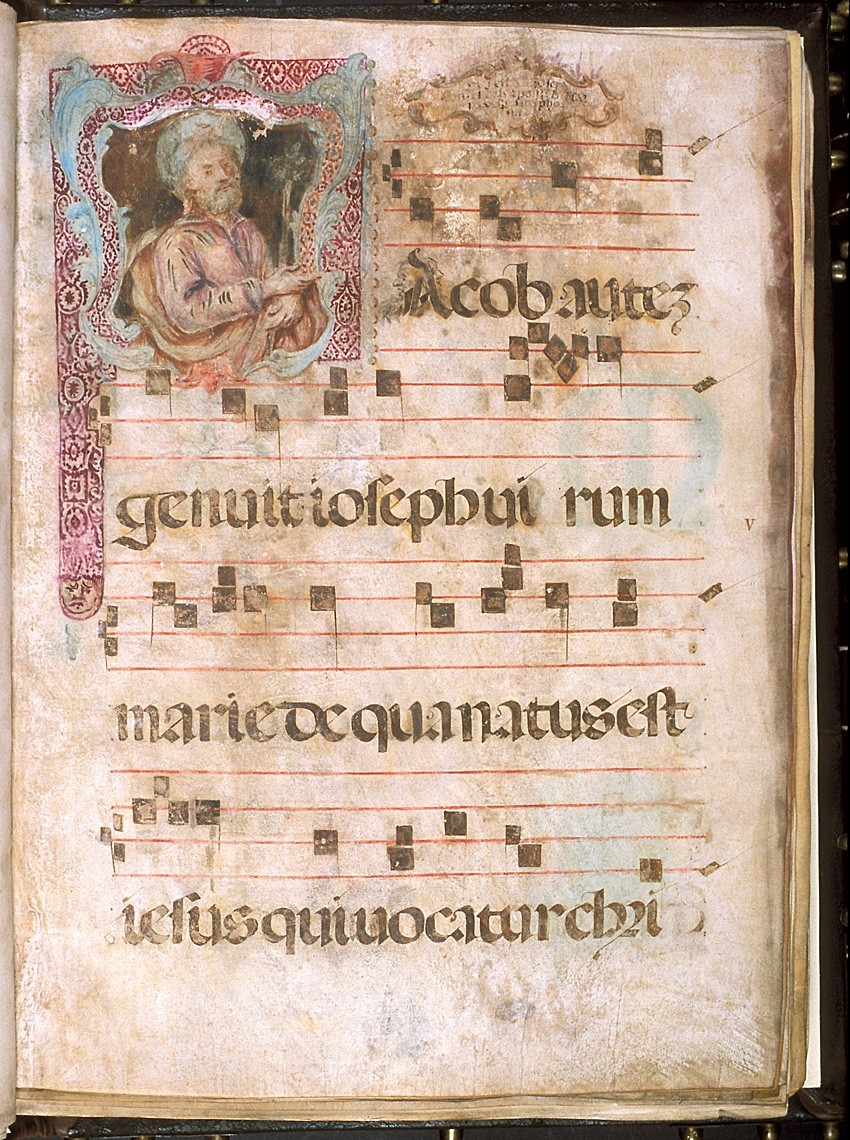 Acob autez
genuit ioseph ui rum
marie de qua natus est
iesus qui uocatur chri
V